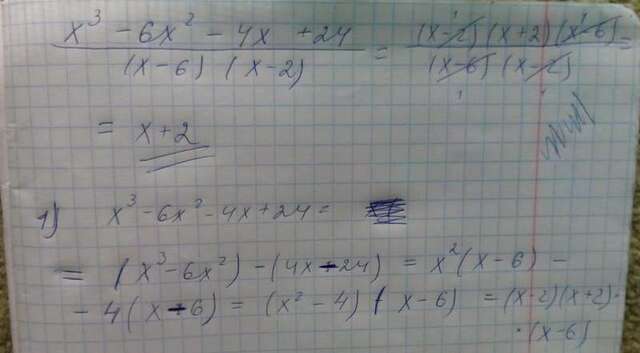 x³ - 6x² - 4x + 24 / (x-6) (x-2) = (x-2)(x+2)(x-6) / (x-6)(x-2) =
= x+2
1) x³ - 6x² - 4x + 24 =
= (x³ - 6x²) - (4x - 24) = x²(x-6) -
- 4(x-6) = (x² - 4)(x-6) = (x-2)(x+2)·
·(x-6)